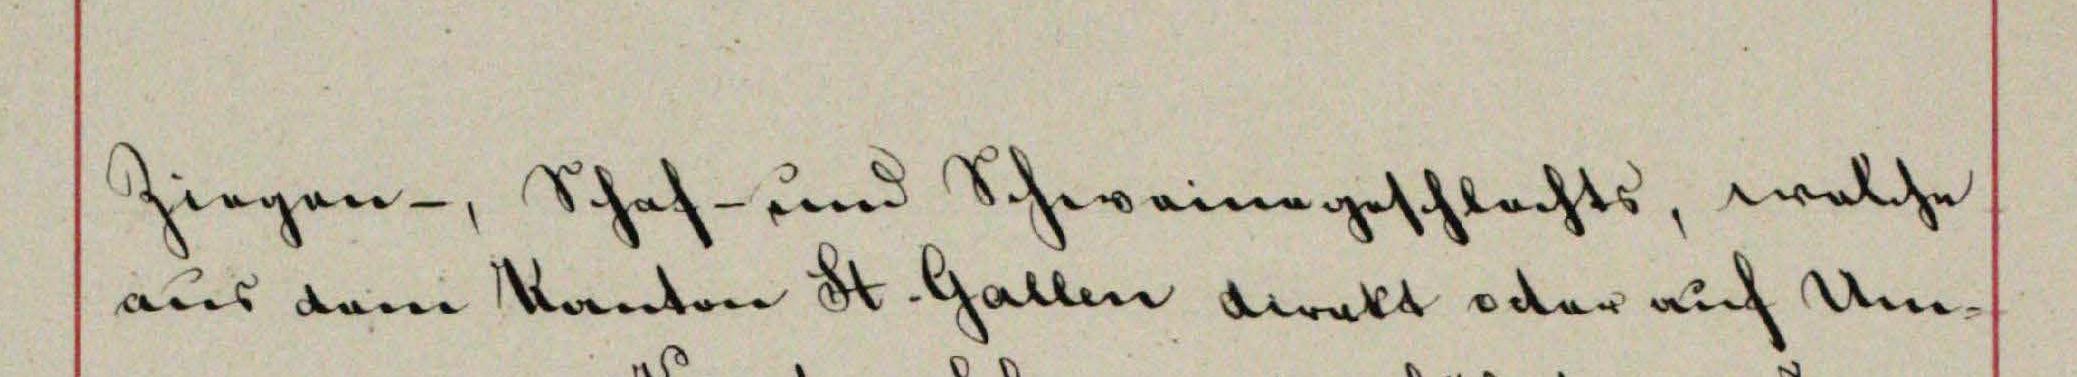 Ziegen-, Schaf- und Schweinegeschlechts, welche
aus dem Kanton St. Gallen direkt oder auf Um-